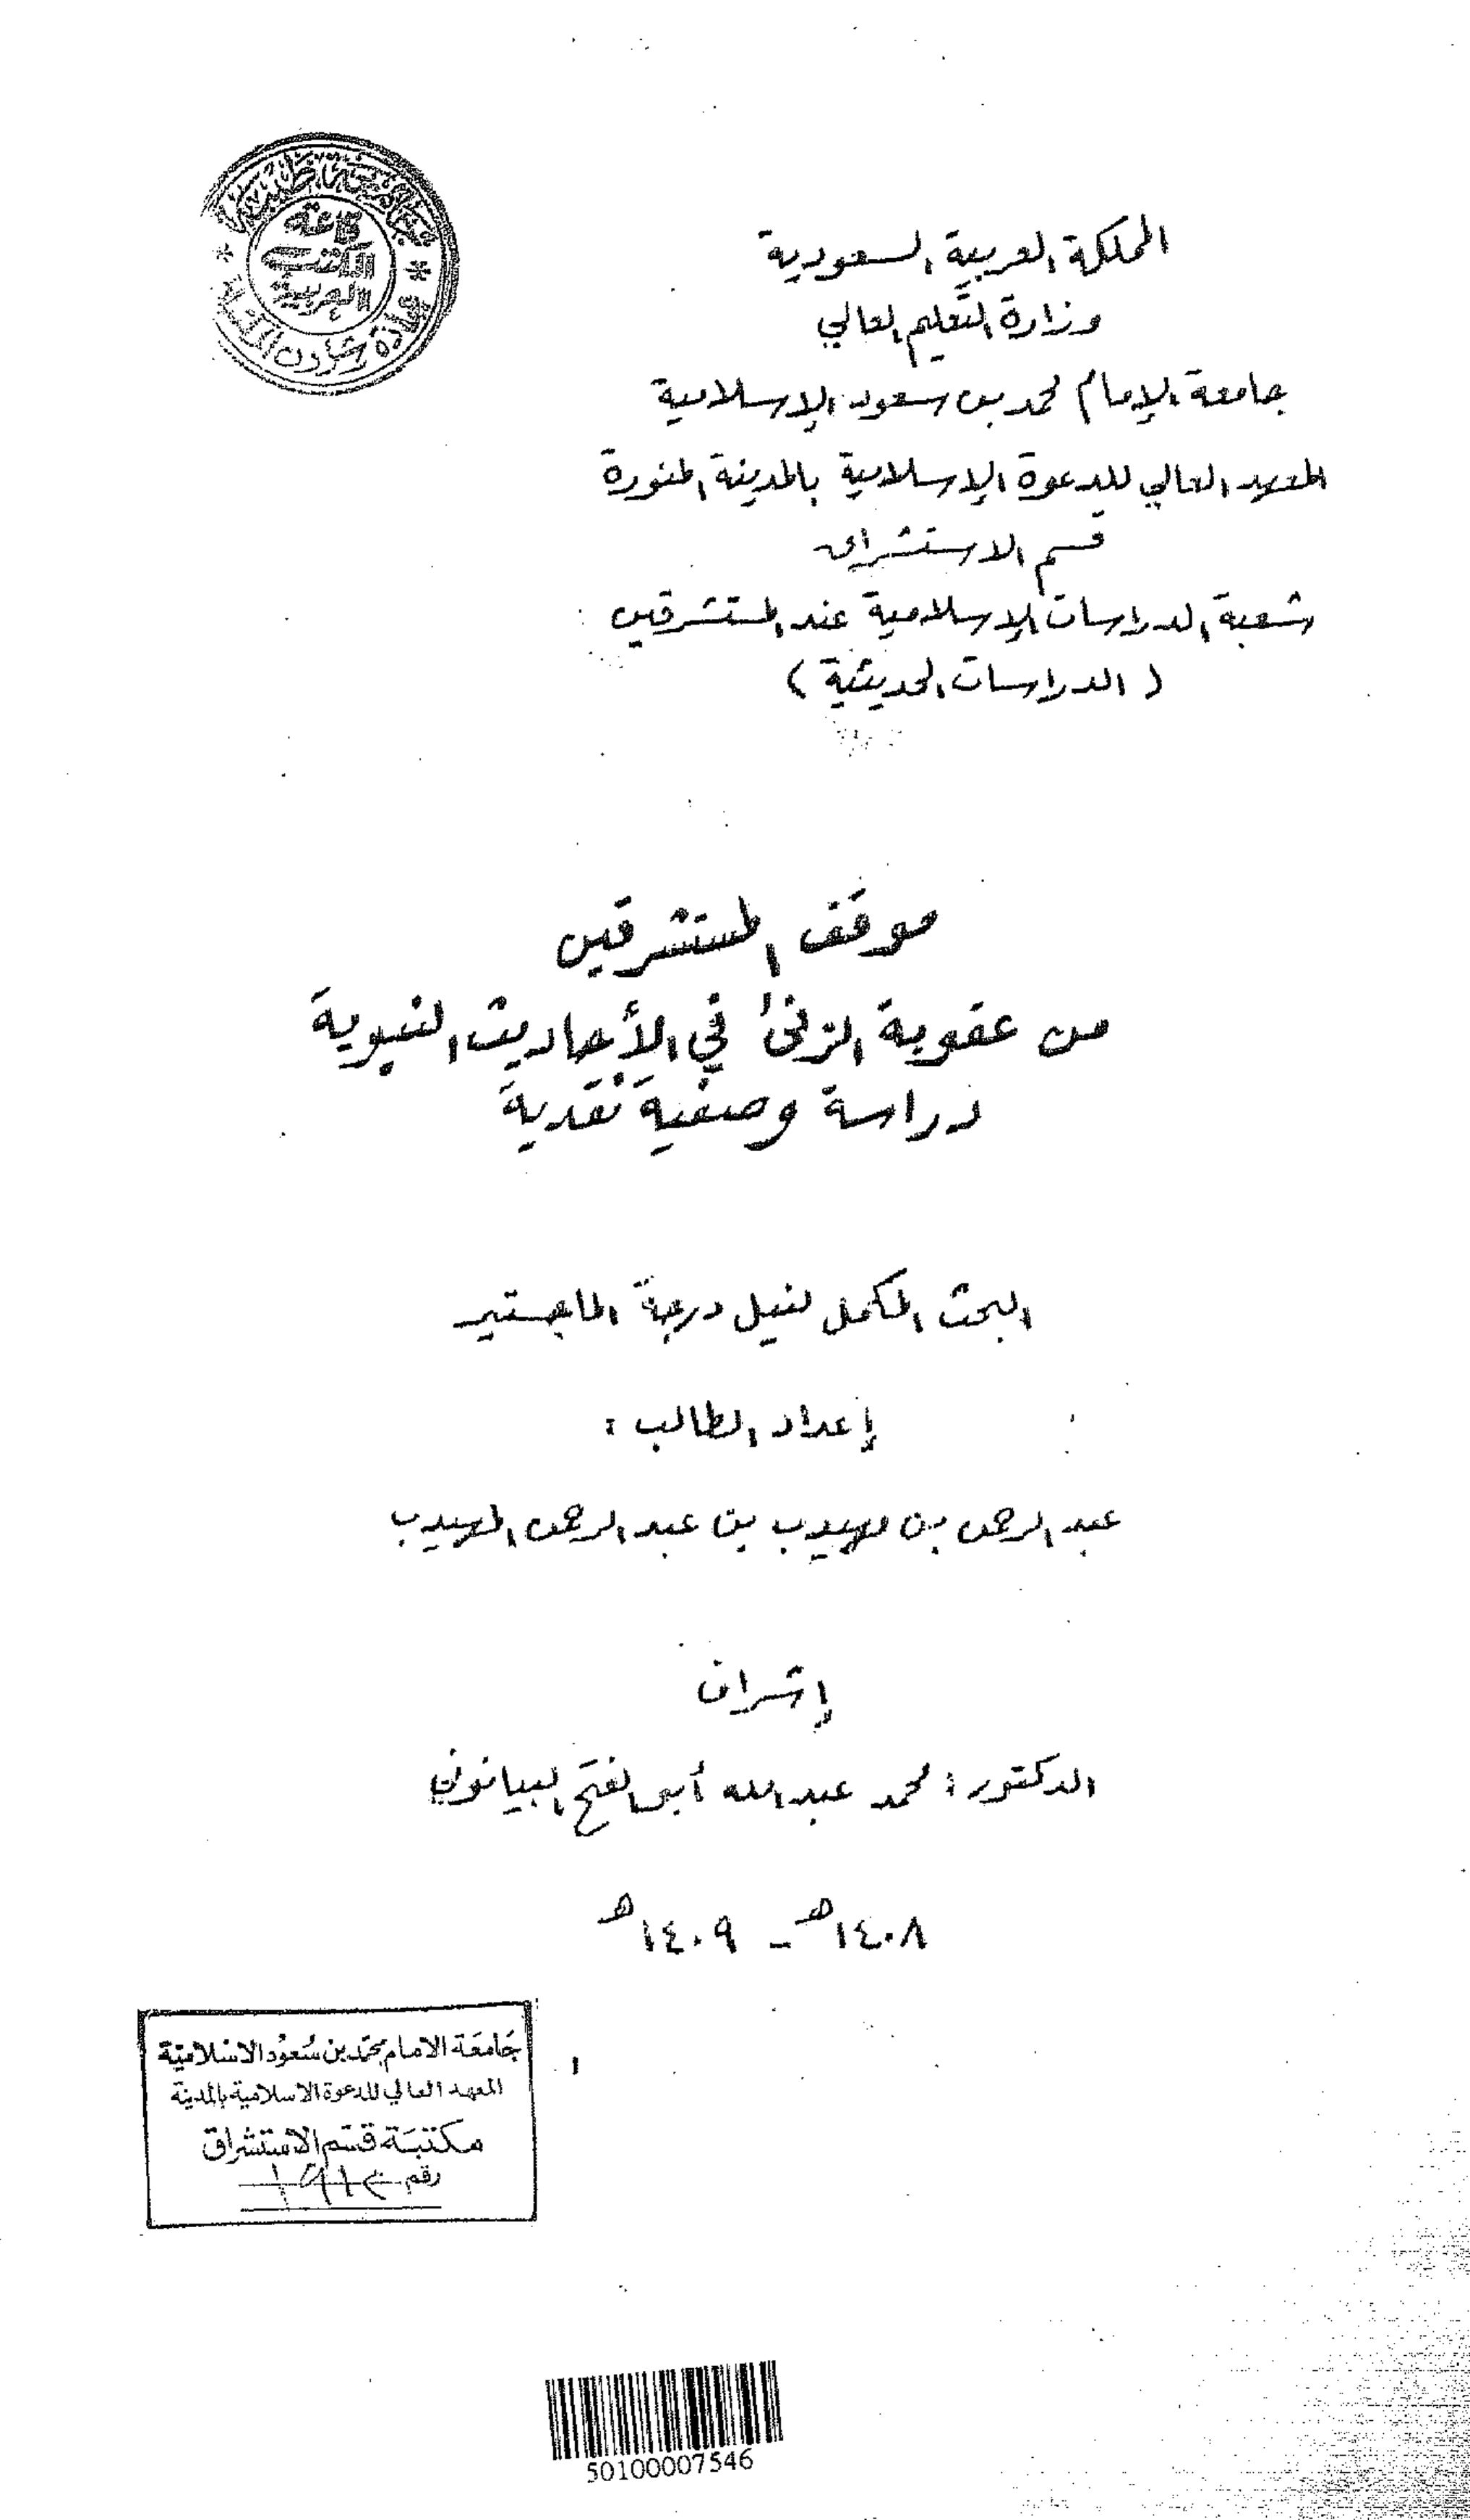 جامعة طيبة
قاعة
الكتب
العربية
عمادة شؤون
المملكة العربية السعودية
وزارة التعليم العالي
جامعة الإمام محمد بن سعود الإسلامية
المعهد العالي للدعوة الإسلامية بالمدينة المنورة
قسم الاستشراق
شعبة الدراسات الإسلامية عند المستشرقين
( الدراسات الحديثية )
موقف المستشرقين
من عقوبة الزنى في الأحاديث النبوية
دراسة وصفية نقدية
البحث المكمل لنيل درجة الماجستير
إعداد الطالب :
عبد الرحمن بن مهيدب بن عبد الرحمن المهيدب
إشراف
الدكتور : محمد عبد الله أبي الفتح البيانوني
١٤٠٨هـ - ١٤٠٩هـ
جَامعَة الامام محمّد بن سُعوُد الاسْلاميّة
المعهد العالي للدعوة الاسلامية بالمدينة
مكتبَة قسْم الاسْتشراق
رقم
50100007546